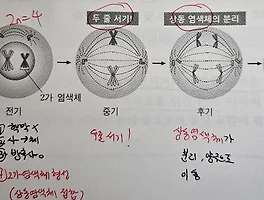 2n=4
두 줄 서기!
상동 염색체의 분리
2가 염색체
전기
중기
후기
핵막 X
두줄서기!
상동염색체가
분리, 양극으로
이동
2가 염색체 형성
(상동염색체 접합)